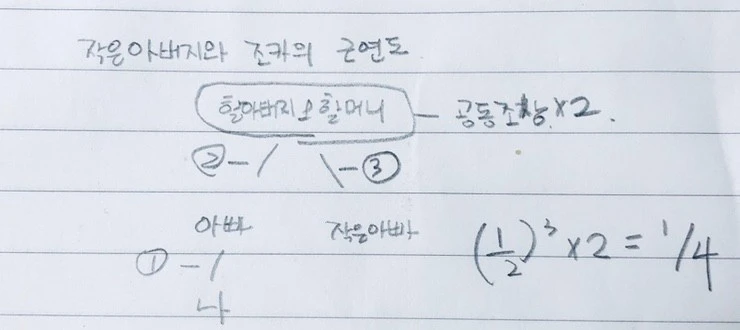 작은아버지와 조카의 근연도
할아버지 할머니 — 공동조상 x2.
②-/ \-③
아빠 작은아빠 (1/2)³ x 2 = 1/4
①-/
나